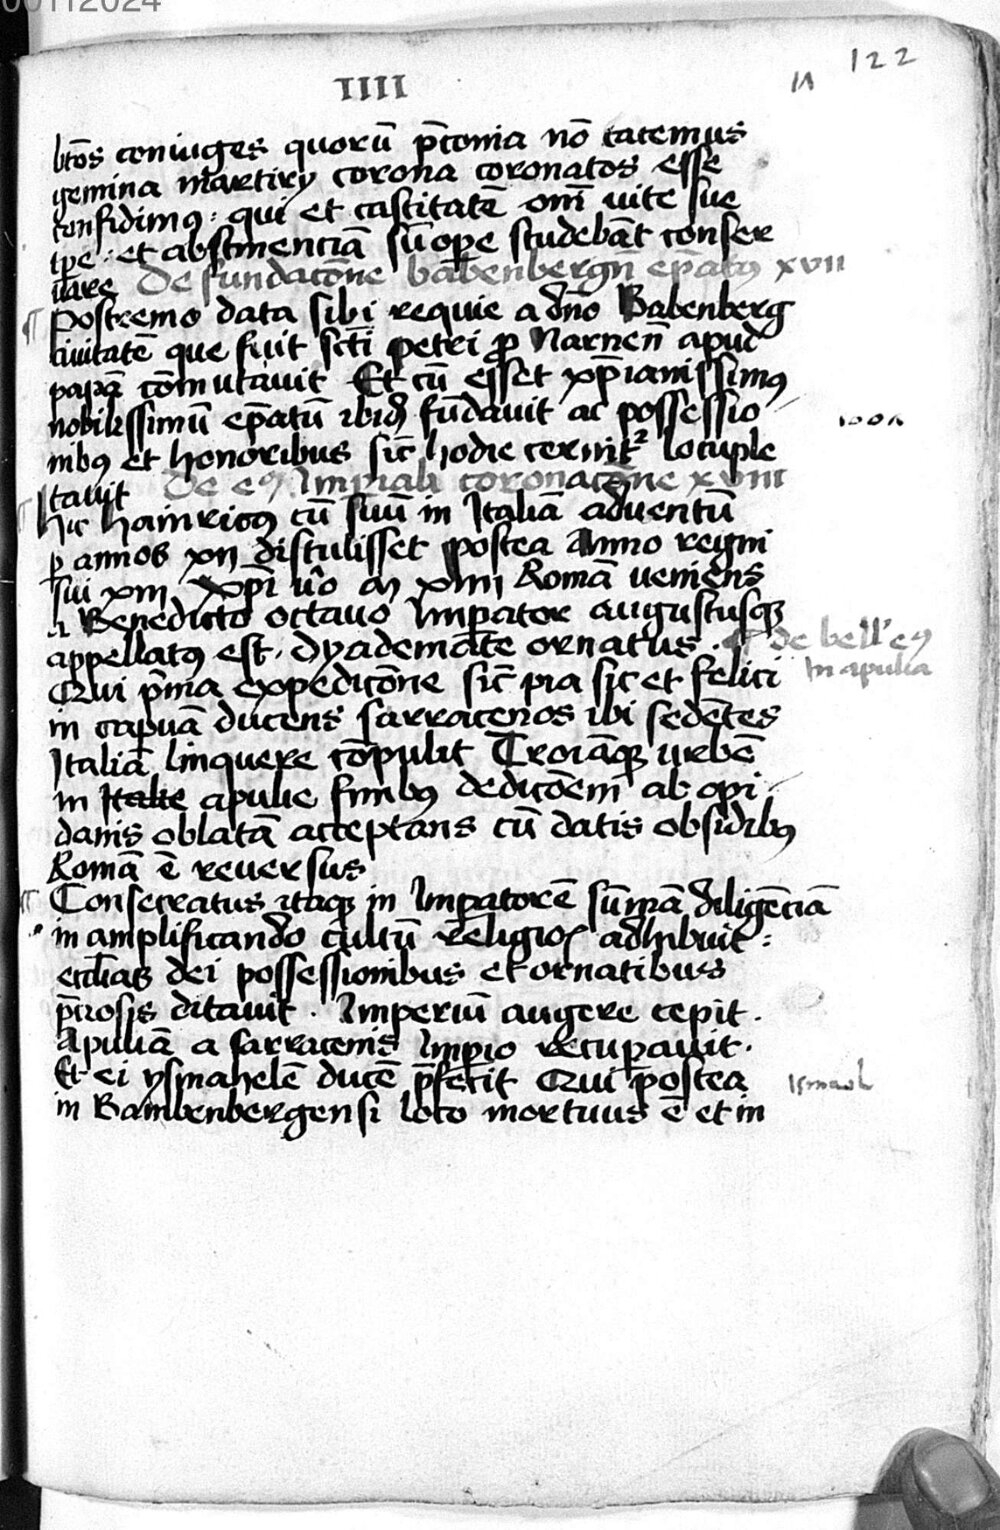 00112024
122
11
IIII
btōs coniuges quorū p̄conia nō tacemus
gemina martirij corona coronatos esse
confidimꝰ: qui et castitatē om̄i uite sue
tp̄e: et abstinenciā sūope studebāt conser
uare De fundacōne babenbergn̄ ep̄atꝰ xvii
¶ Postremo data sibi requie a dn̄o Babenberg
ciuitatē que fuit sct̄i petri ꝓ Narnen̄ apud
papā cōmutauit Et cū esset xp̄ianissimꝰ
nobilissimū ep̄atū ibid̄ fūdauit ac possessio
nibꝰ et honoribus sic̄ hodie cernit᷑ locuple
tauit De eiꝰ Imp̄iali coronacōne xviii
¶ Hic Hainricꝰ cū suū in Italiā aduentū
ꝑ annos xii distulisset postea Anno regni
sui xiii xp̄i v̊o m xiiii Romā ueniens
a Benedicto octauo Imp̄ator augustusqꝫ
appellatꝰ est. dyademate ornatus. ¶ de bell' eiꝰ
in apulia
Qui p̄ma expedicōne sic̄ pia sic et felici
in capuā ducens sarracenos ibi sedētes
Italiā linquere cōpulit Troiāqꝫ urbē
in Italie apulie finibꝰ dedicōem ab opi
danis oblatā acceptans cū datis obsidibꝰ
Romā ē reuersus
¶ Consecratus itaqꝫ in Imp̄atorē sūmā diligēciā
in amplificando cultū religioꝫ adhibuit:
eccl̄iasqꝫ dei possessionibus et ornatibus
p̄ciosis ditauit. Imperiū augere cepit.
Apuliā a sarracenis Imp̄io recuꝑauit.
Et ei ysmahelē ducē p̄fecit Qui postea
Ismael
in Bambenbergensi loco mortuus ē et in